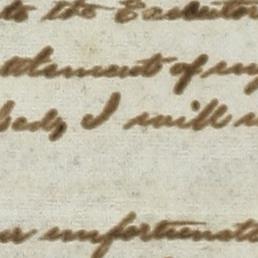 to the Executor
ttlement of my
body I will
unfortunate